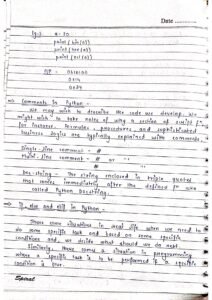 Date
Eg:) a = 30
print (bin (a))
print (hex (a))
print (oct (a))
O/P
=> Comments in Python -
We may wish to describe the code we develop. We
might wish to take notes of why a section of script
for instance. Formulas, procedures, and sophisticated
business logic are typically explained with comments.
Single-line comment - #
Multi-line comment - # or
Doc-string - The string enclosed in triple quotes
that comes immediately after the defined
called Python docstring.
=> If, else and elif in Python -
There come situations in real life when we need to
do some specific task and based on some specific
conditions and, we decide what should we do next.
Similarly, there comes a situation in programming
where a specific task is to be performed if a specific
condition is true.
Spiral